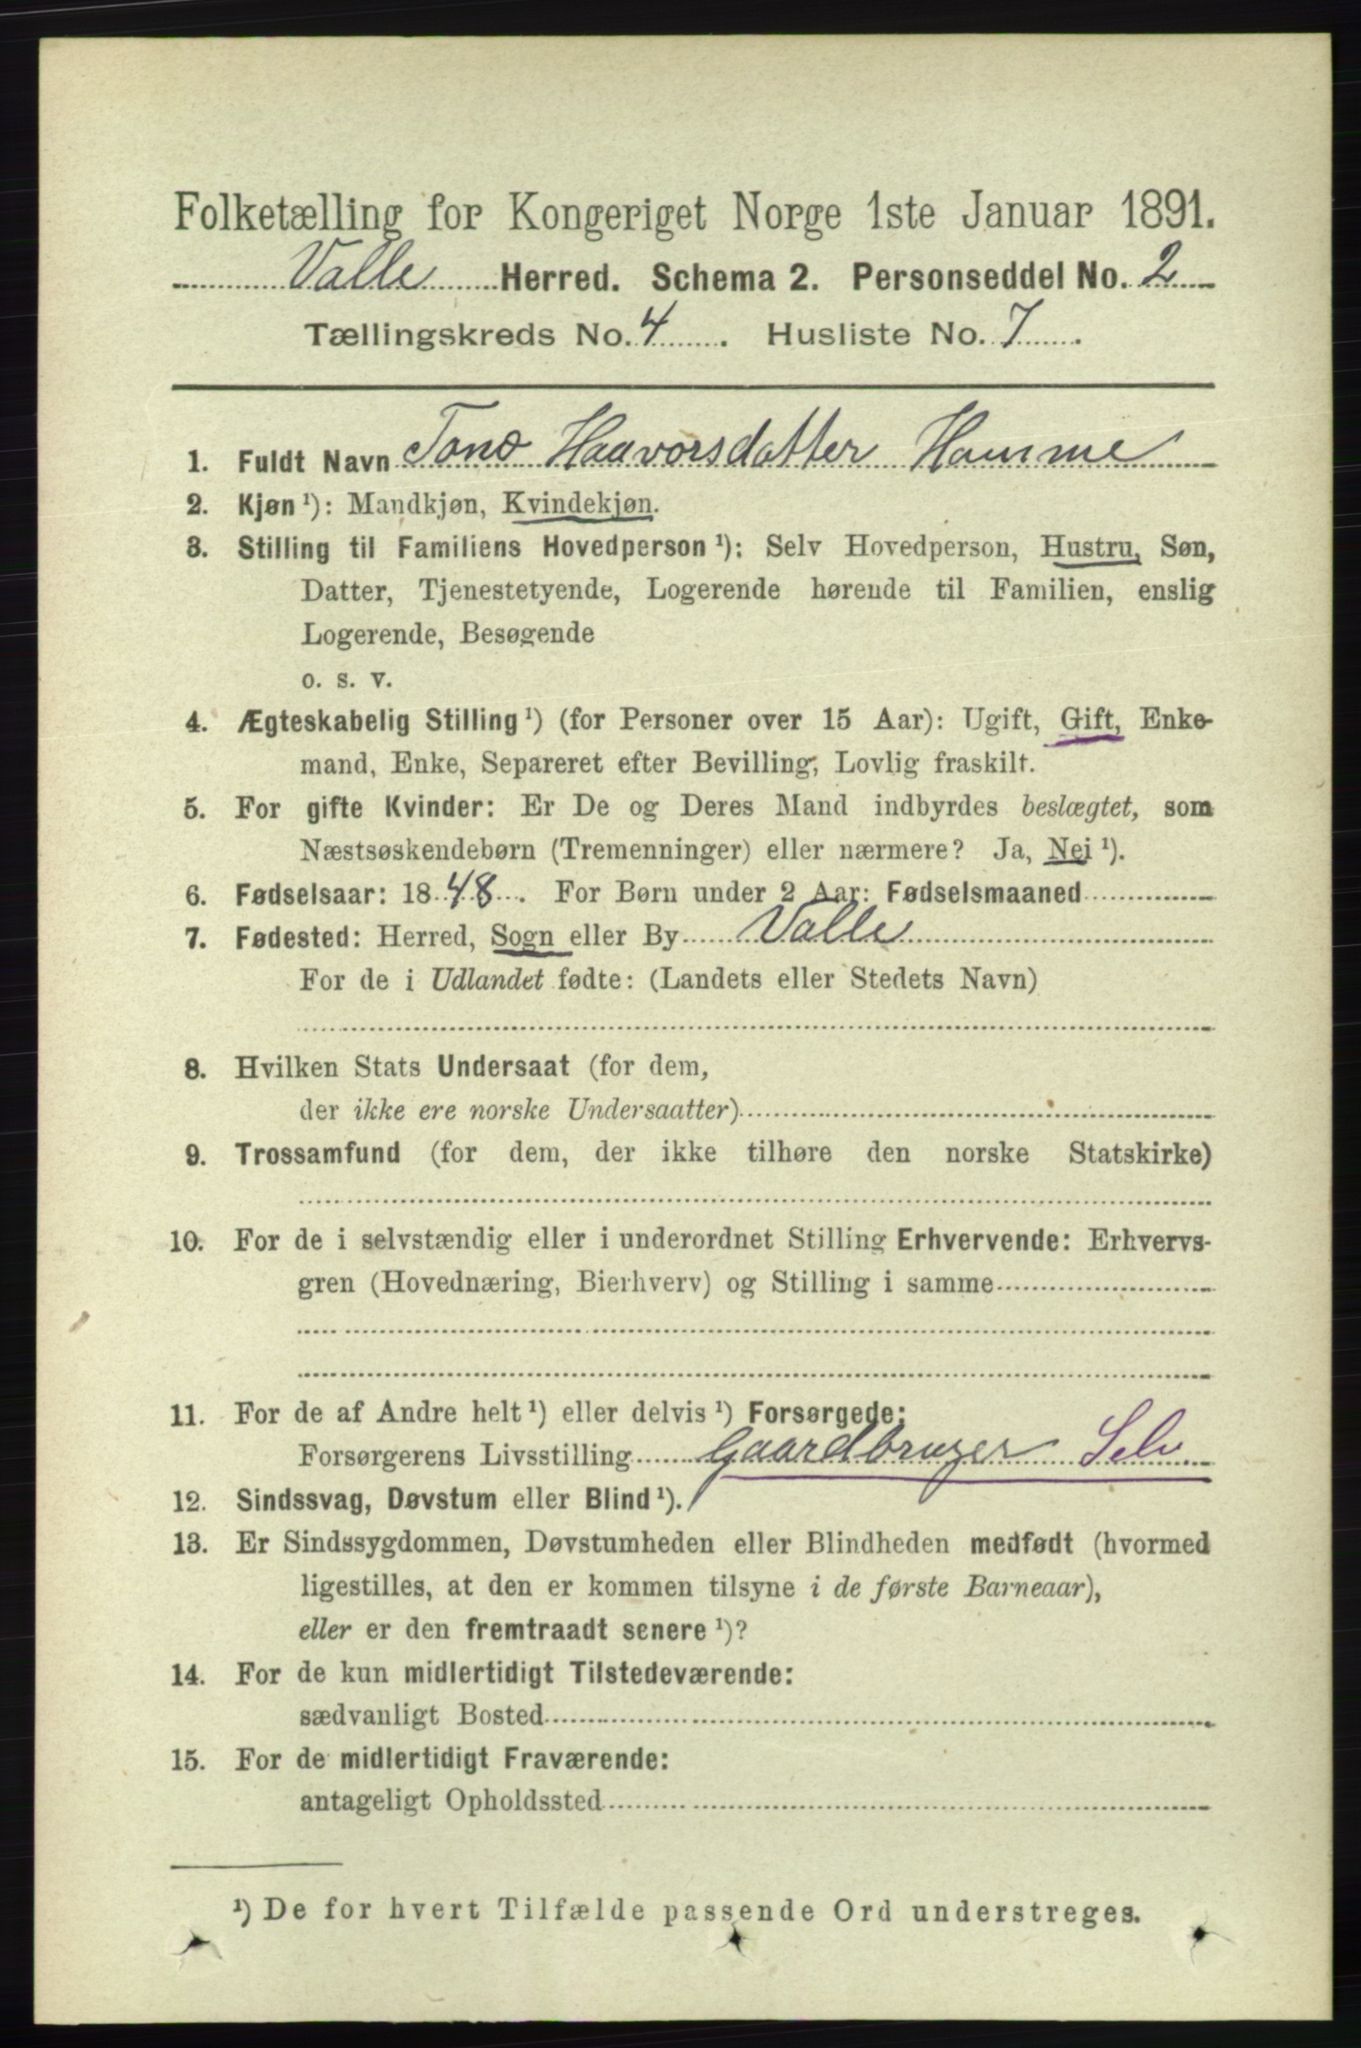 Folketælling for Kongeriget Norge 1ste Januar 1891.
Valle Herred. Schema 2. Personseddel No. 2
Tællingskreds No. 4. Husliste No. 7.
1. Fuldt Navn Tone Haavorsdatter Homme
2. Kjøn ¹): Mandkjøn, Kvindekjøn.
3. Stilling til Familiens Hovedperson ¹): Selv Hovedperson, Hustru, Søn,
Datter, Tjenestetyende, Logerende hørende til Familien, enslig
Logerende, Besøgende
o. s. v.
4. Ægteskabelig Stilling ¹) (for Personer over 15 Aar): Ugift, Gift, Enke-
mand, Enke, Separeret efter Bevilling, Lovlig fraskilt.
5. For gifte Kvinder: Er De og Deres Mand indbyrdes beslægtet, som
Næstsøskendebørn (Tremenninger) eller nærmere? Ja, Nei ¹).
6. Fødselsaar: 1848. For Børn under 2 Aar: Fødselsmaaned
7. Fødested: Herred, Sogn eller By Valle
For de i Udlandet fødte: (Landets eller Stedets Navn)
8. Hvilken Stats Undersaat (for dem,
der ikke ere norske Undersaatter)
9. Trossamfund (for dem, der ikke tilhøre den norske Statskirke)
10. For de i selvstændig eller i underordnet Stilling Erhvervende: Erhvervs-
gren (Hovednæring, Bierhverv) og Stilling i samme
11. For de af Andre helt ¹) eller delvis ¹) Forsørgede:
Forsørgerens Livsstilling Gaardbruger Selv
12. Sindssvag, Døvstum eller Blind ¹).
13. Er Sindssygdommen, Døvstumheden eller Blindheden medfødt (hvormed
ligestilles, at den er kommen tilsyne i de første Barneaar),
eller er den fremtraadt senere ¹)?
14. For de kun midlertidigt Tilstedeværende:
sædvanligt Bosted
15. For de midlertidigt Fraværende:
antageligt Opholdssted
¹) De for hvert Tilfælde passende Ord understreges.